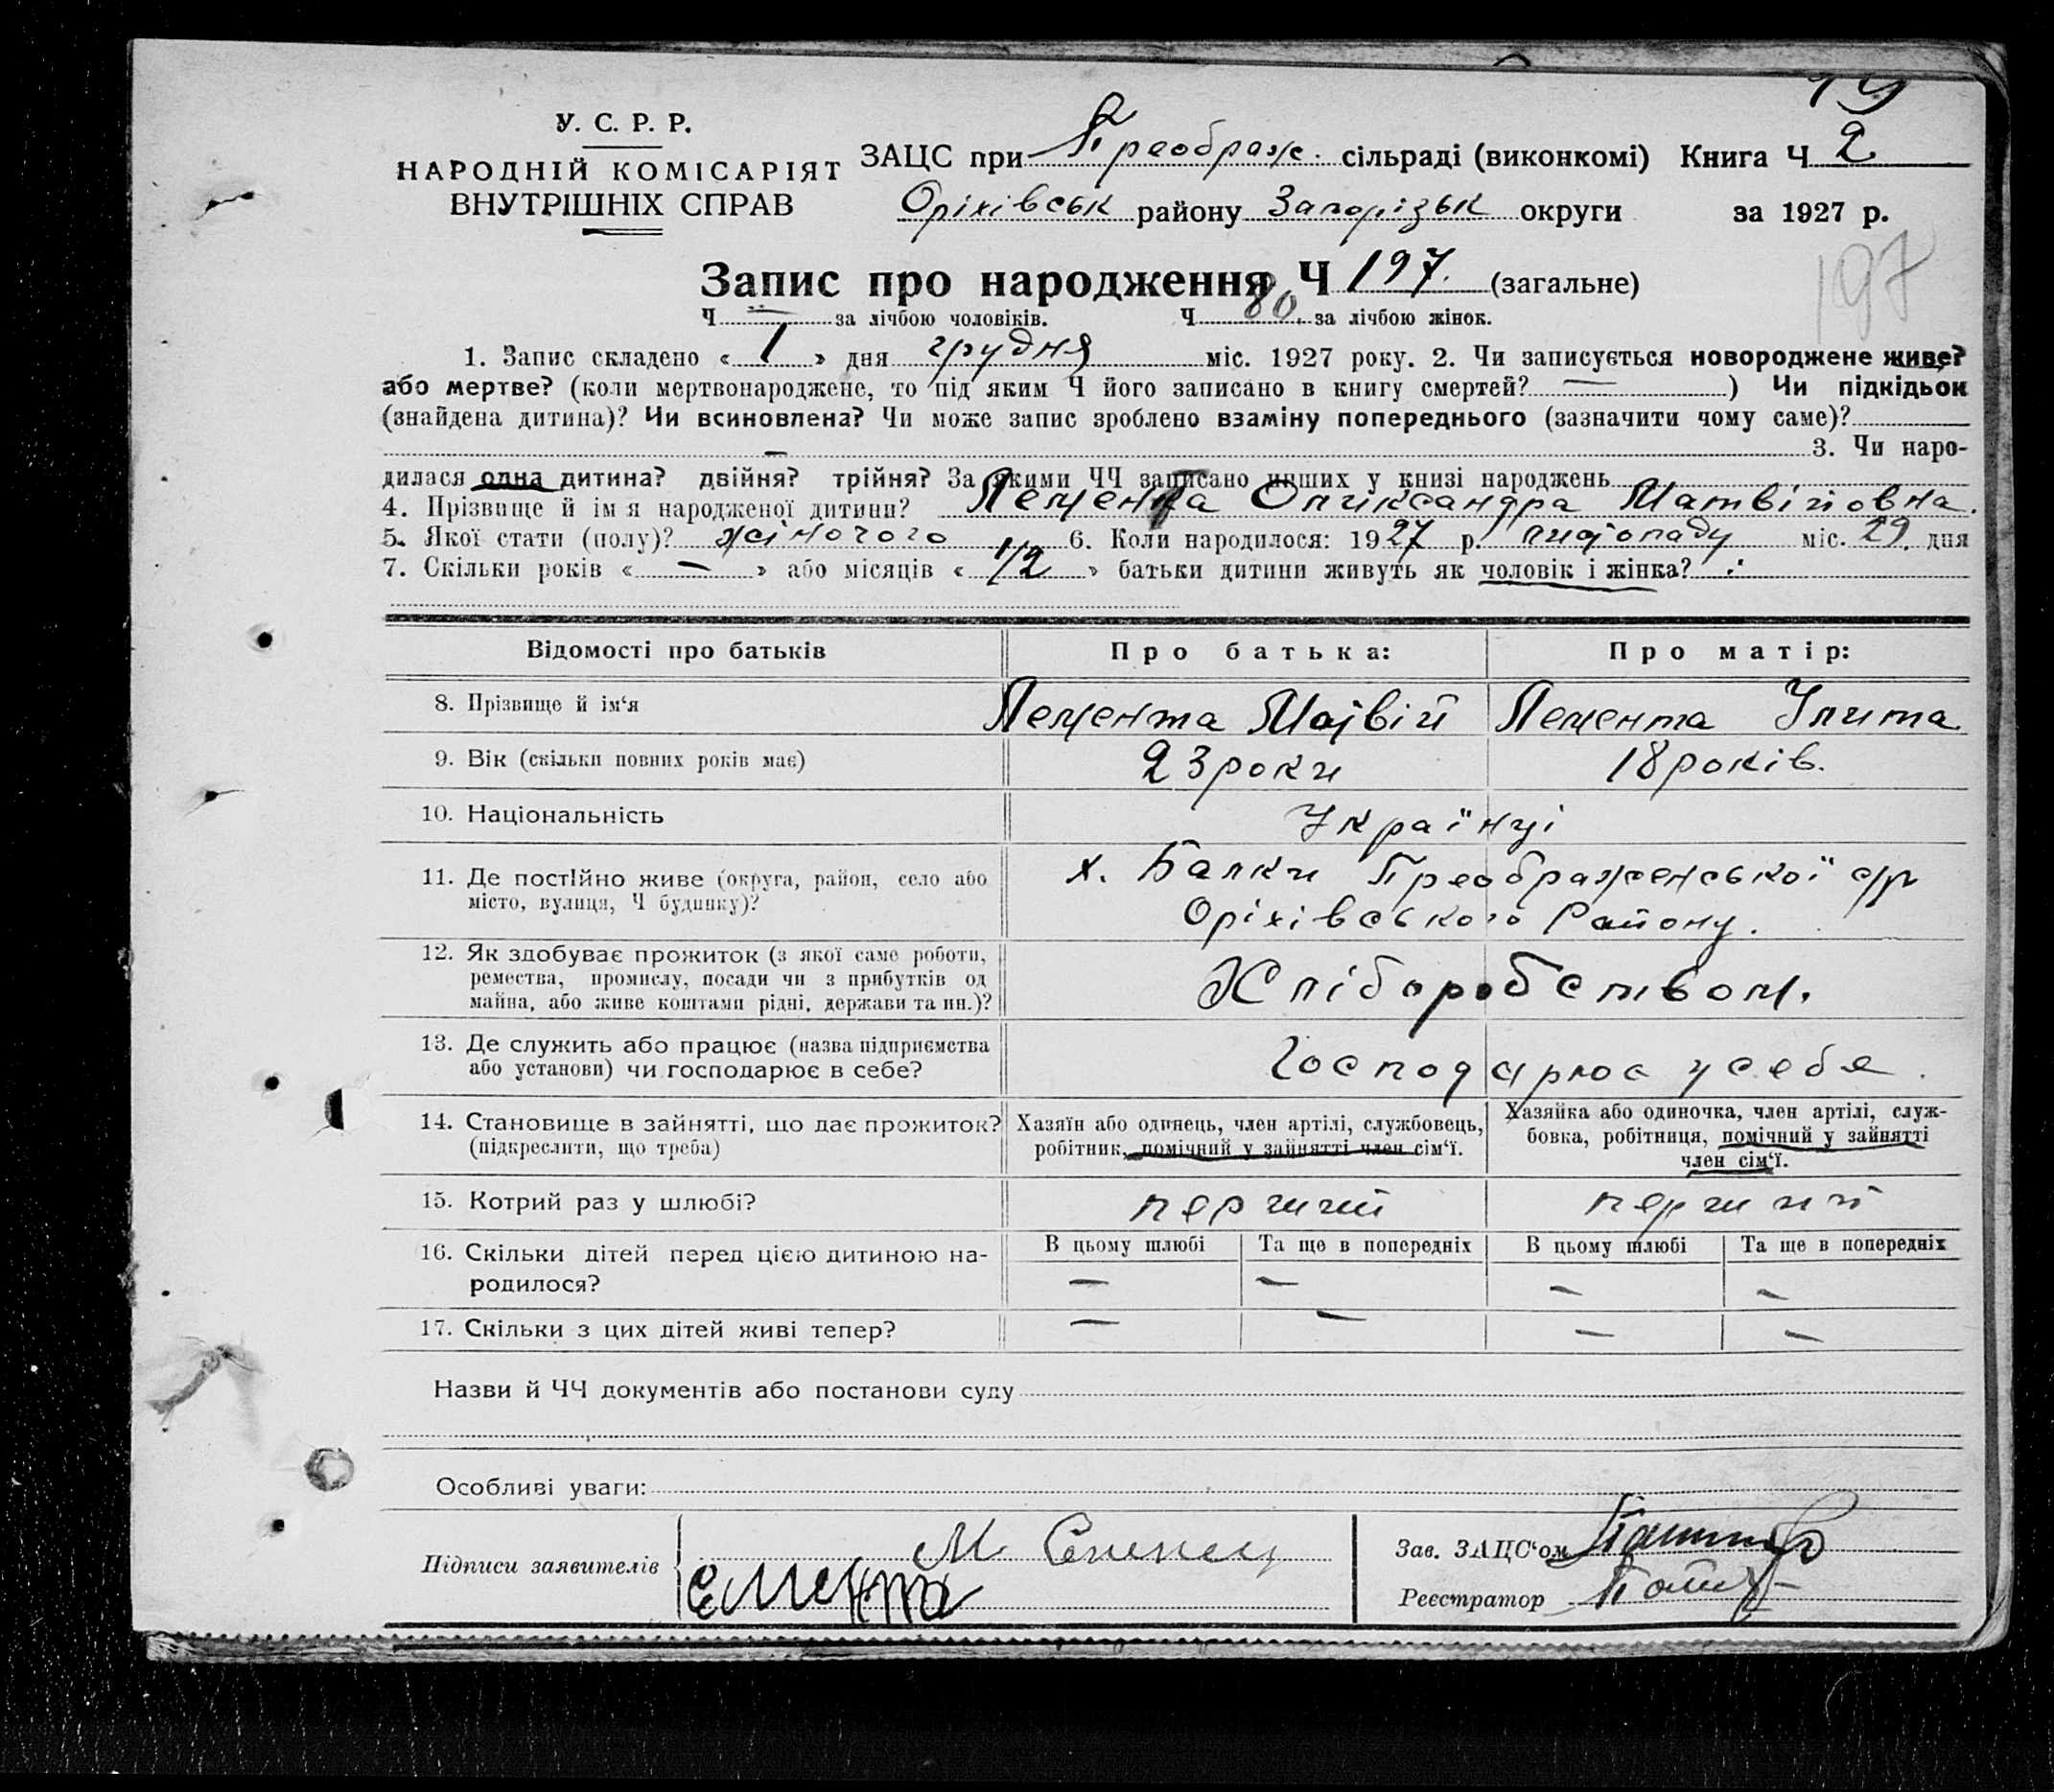 19
У. С. Р. Р.
НАРОДНІЙ КОМІСАРІЯТ
ВНУТРІШНІХ СПРАВ
ЗАЦС при Преображ. сільраді (виконкомі) Книга Ч 2
Оріхівськ району Запорізьк округи за 1927 р.
197
Запис про народження Ч 197. (загальне)
Ч — за лічбою чоловіків. Ч 80. за лічбою жінок.
1. Запис складено « 1 » дня грудня міс. 1927 року. 2. Чи записується новороджене живе?
або мертве? (коли мертвонароджене, то під яким Ч його записано в книгу смертей? — ) Чи підкідьок
(знайдена дитина)? Чи всиновлена? Чи може запис зроблено взаміну попереднього (зазначити чому саме)?
— 3. Чи наро-
дилася одна дитина? двійня? трійня? За якими ЧЧ записано инших у книзі народжень
4. Прізвище й ім'я народженої дитини? Лемента Олександра Матвіивна.
5. Якої стати (полу)? жіночого 6. Коли народилося: 1927 р. листопаду міс. 29. дня
7. Скільки років « — » або місяців « 1/2 » батьки дитини живуть як чоловік і жінка?
Відомості про батьків Про батька: Про матір:
8. Прізвище й ім'я Лемента Матвій Лемента Улита
9. Вік (скільки повних років має) 23 роки 18 років.
10. Національність Українці
11. Де постійно живе (округа, район, село або
місто, вулиця, Ч будинку)?
х. Балки Преображенської с/р
Оріхівського Району.
12. Як здобуває прожиток (з якої саме роботи,
ремества, промислу, посади чи з прибутків од
майна, або живе коштами рідні, держави та ин.)?
Хліборобством.
13. Де служить або працює (назва підприємства
або установи) чи господарює в себе?
Господарює у себе.
14. Становище в зайнятті, що дає прожиток?
(підкреслити, що треба)
Хазяїн або одинець, член артілі, службовець,
робітник, помічний у зайнятті член сім'ї.
Хазяйка або одиночка, член артілі, служ-
бовка, робітниця, помічний у зайнятті
член сім'ї.
15. Котрий раз у шлюбі? перший перший
16. Скільки дітей перед цією дитиною на-
родилося?
В цьому шлюбі Та ще в попередніх В цьому шлюбі Та ще в попередніх
— — — —
17. Скільки з цих дітей живі тепер? — — — —
Назви й ЧЧ документів або постанови суду
Особливі уваги:
Підписи заявителів М
Зав. ЗАЦС'ом
Реєстратор